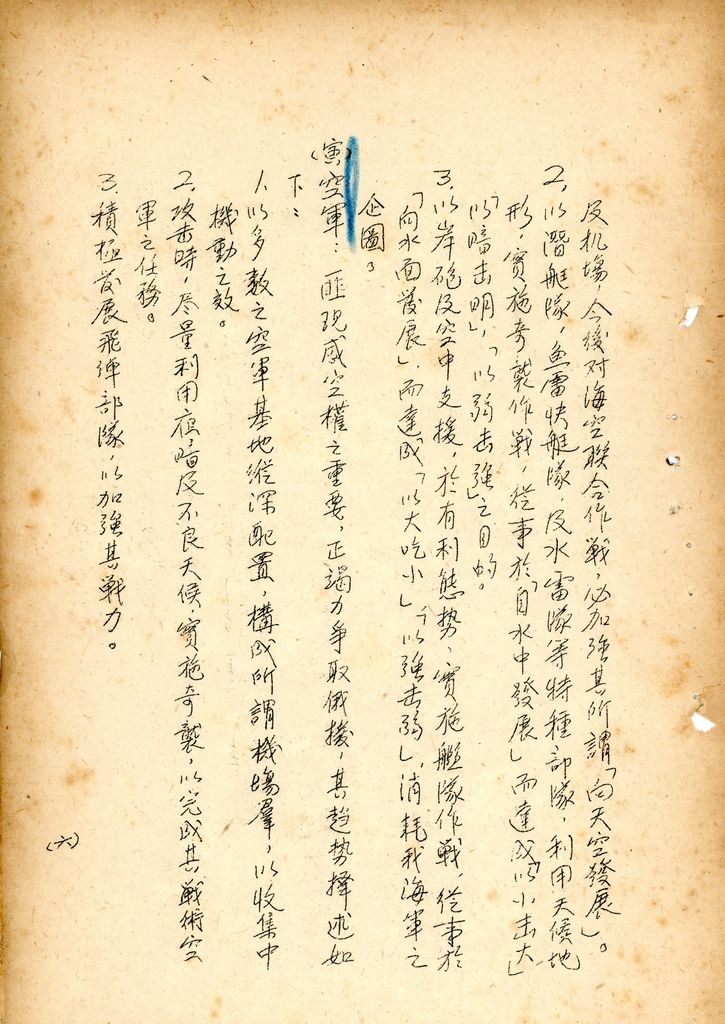 及机場，今後对海空联合作戦，必加強其所謂「向天空發展」。
2. 以潛艇隊，魚雷快艇隊，及水雷隊等特種部隊，利用天候地
形，實施奇襲作戦，從事於「自水中發展」而達成「以小击大」
「以暗击明」，「以弱击強」之目的。
3. 以岸砲及空中支援，於有利態势，實施艦隊作戦，從事於
「向水面發展」，而達成「以大吃小」「以強击弱」，消耗我海軍之
企圖。
(寅)空軍：匪現感空權之重要，正竭力爭取俄援，其趋势擇述如
下：
1. 以多数之空軍基地縱深配置，構成所謂機場羣，以收集中
機動之效。
2. 攻击時，尽量利用夜暗及不良天候，實施奇襲，以完成其戰術空
軍之任務。
3. 積極發展飛弹部隊，以加強其戦力。
(六)